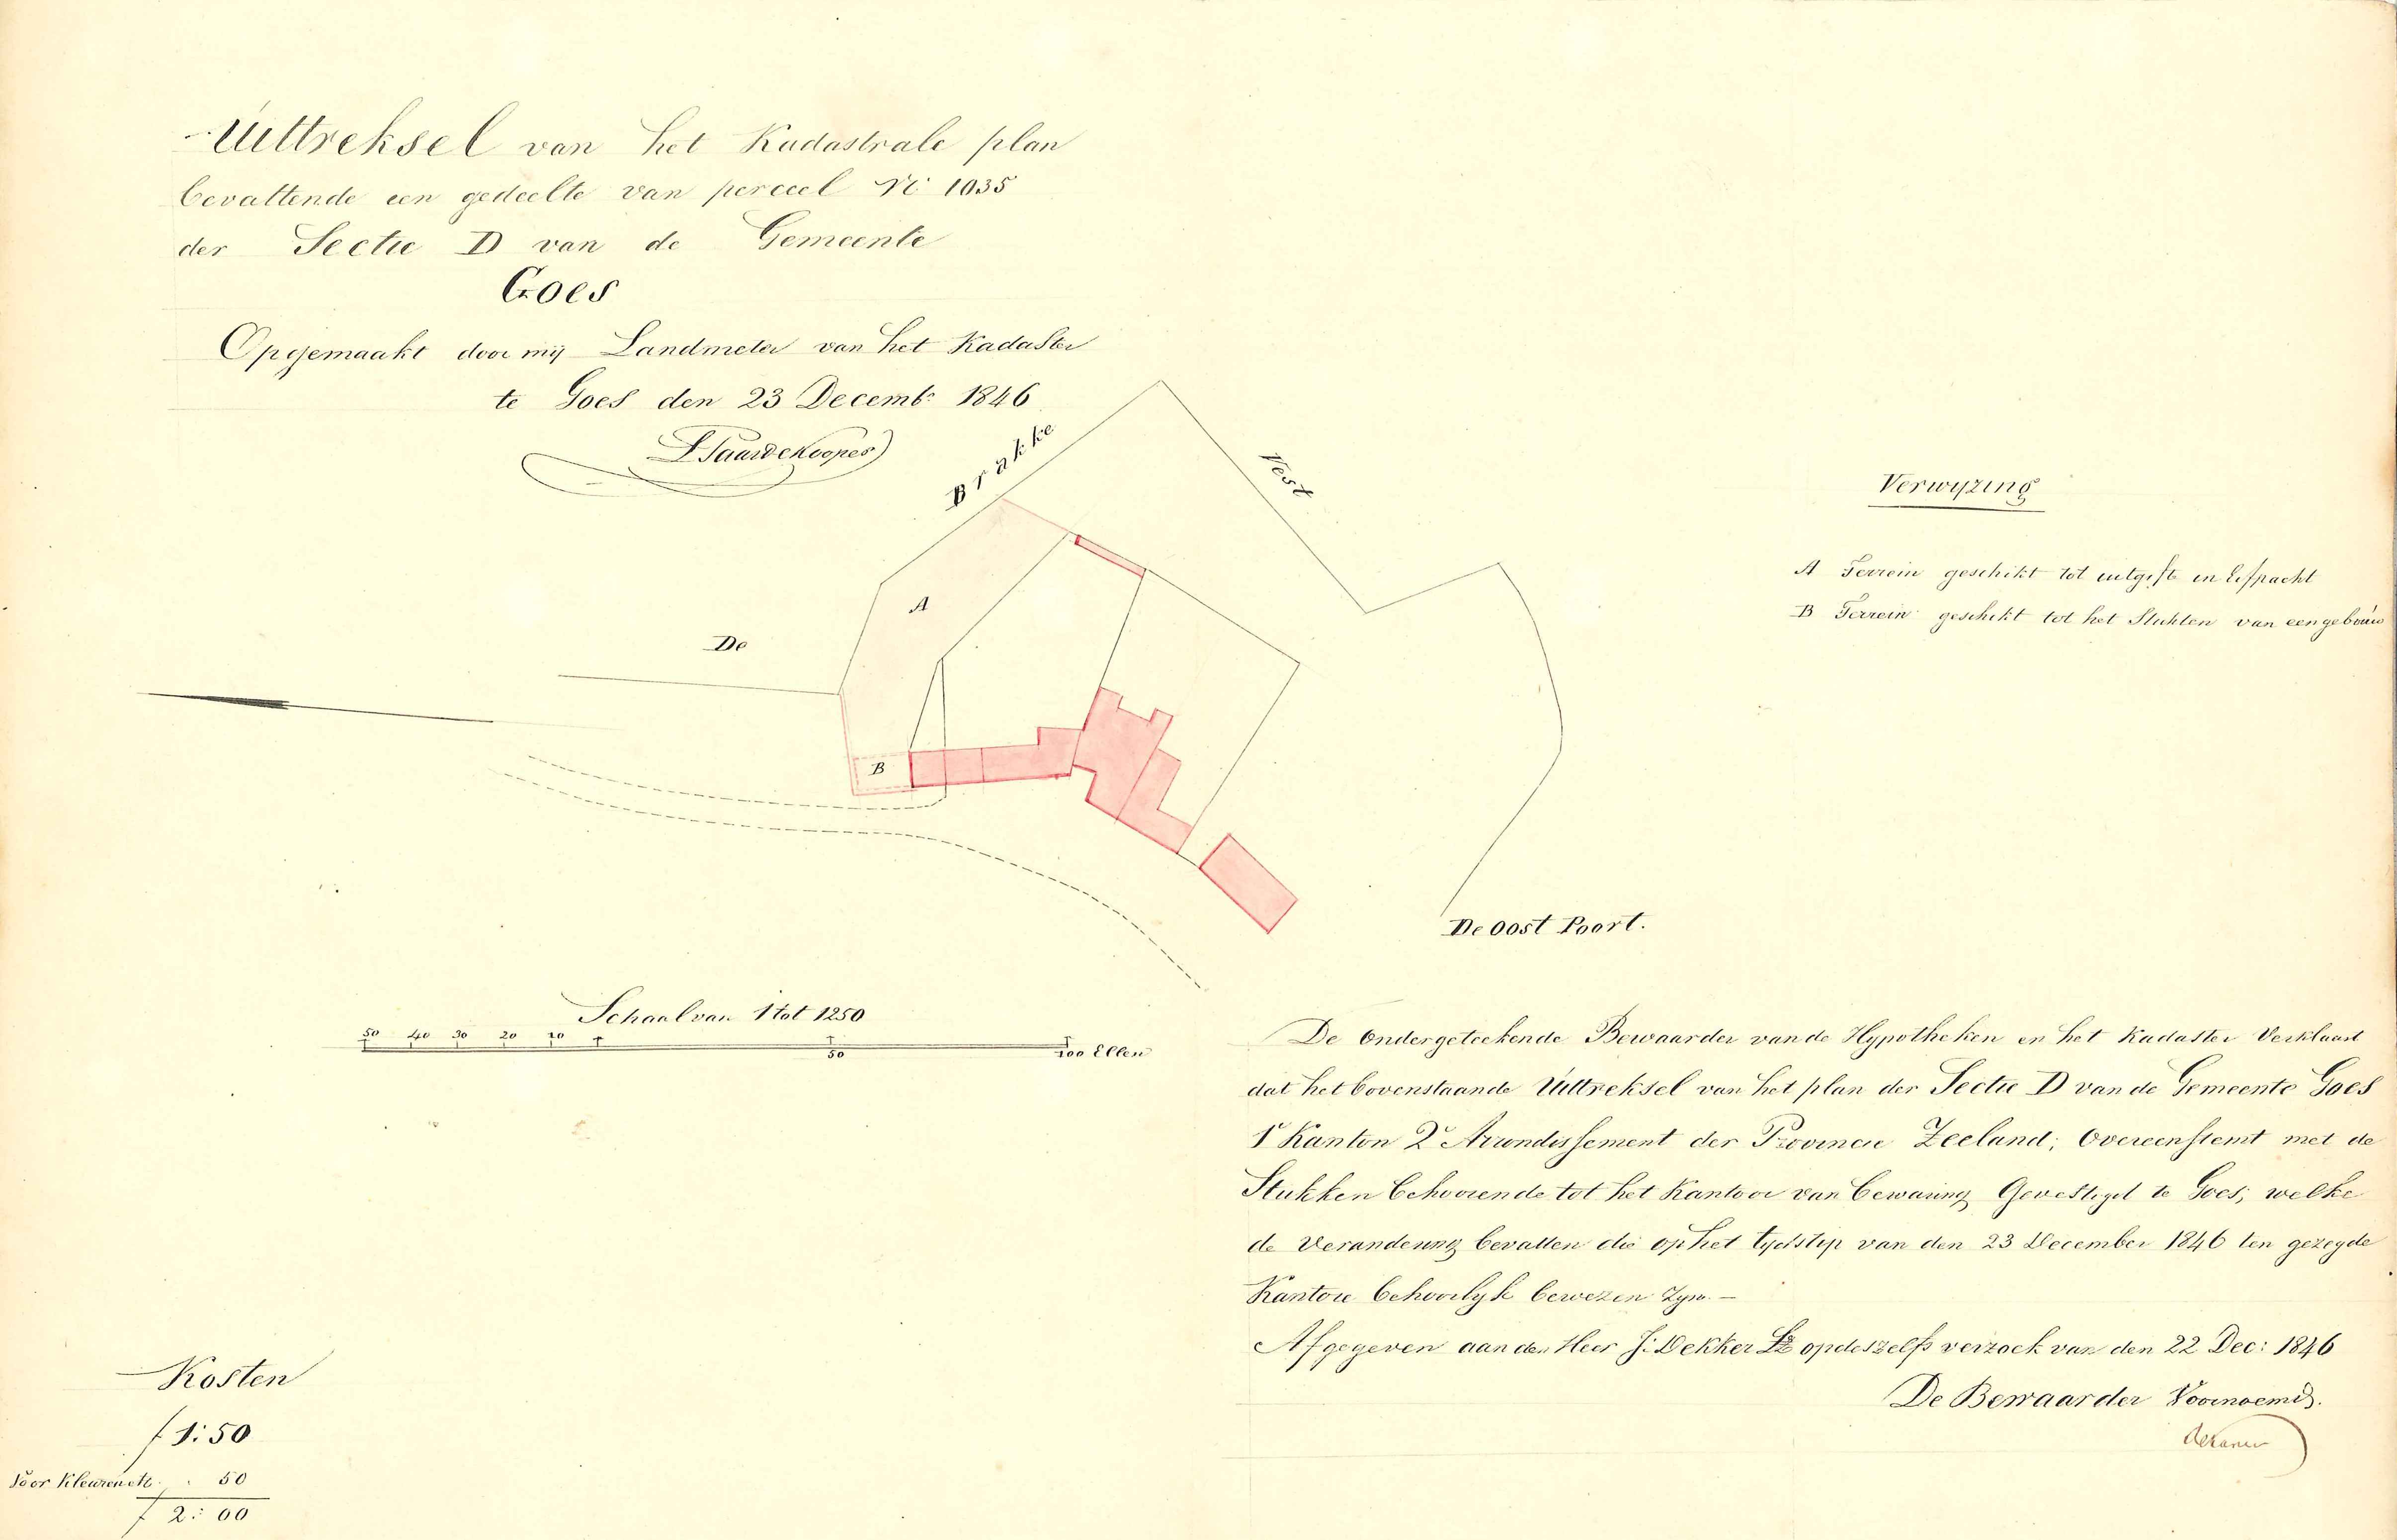 Uittreksel van het Kadastrale plan
bevattende een gedeelte van perceel No 1035
der Sectie D van de Gemeente
Goes
Opgemaakt door mij Landmeter van het Kadaster
te Goes den 23 Decembr 1846
Paardekooper
Brakke
Vest
Verwijzing
A Terrein geschikt tot uitgifte in Erfpacht
B Terrein geschikt tot het Stichten van een gebouw
A
De
B
De Oost Poort.
Schaal van 1 tot 1250
50 40 30 20 10 50 100 Ellen
De Ondergeteekende Bewaarder van de Hypotheken en het Kadaster Verklaart
dat het bovenstaande Uittreksel van het plan der Sectie D van de Gemeente Goes
1e Kanton 2e Arrondissement der Provincie Zeeland; Overeenstemt met de
Stukken behoorende tot het Kantoor van bewaring Gevestigd te Goes; welke
de Verandering bevatten die op het tijdstip van den 23 December 1846 ten gezegde
Kantore behoorlijk bewezen Zijn. —
Afgegeven aan den Heer J: Dekker Lz op deszelfs verzoek van den 22 Dec: 1846
De Bewaarder Voornoemd.
Kosten
f 1:50
Voor Kleuren etc. 50
f 2:00